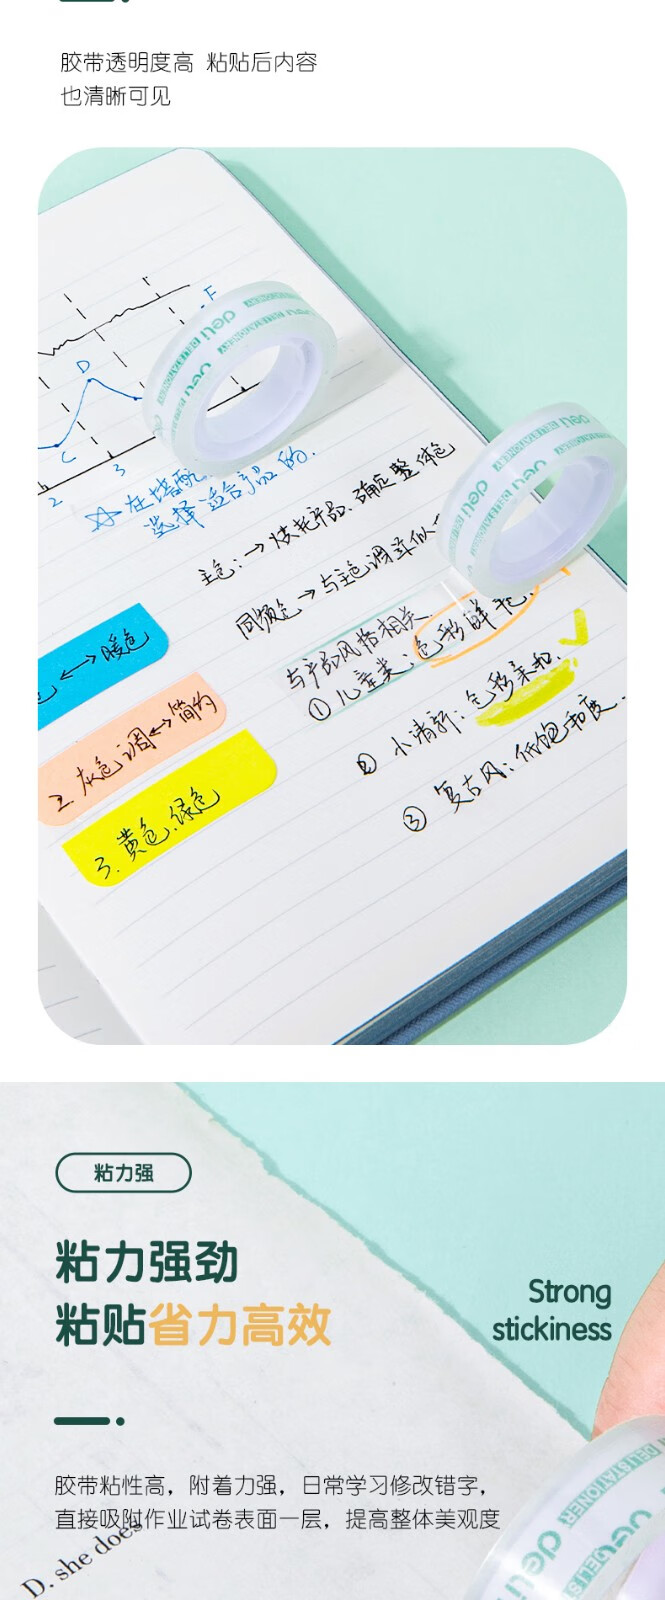 胶带透明度高 粘贴后内容
也清晰可见
F
D
C
2
3
deli DELI STATIONERY
deli
deli DELI STATIONERY
deli
☆在搭配
选择适合产品的.
主色:→依托产品.确定整体色
同频色→与主色调yle似
与产品风格相关.
①儿童类:色彩鲜艳.
②小清新:色彩柔和.
③复古风:低饱和度.
色↔暖色
2.灰色调↔简约
3.黄色.绿色
粘力强
粘力强劲
粘贴省力高效
Strong
stickiness
胶带粘性高，附着力强，日常学习修改错字，
直接吸附作业试卷表面一层，提高整体美观度
D. she does
DELI STATIONERY
deli